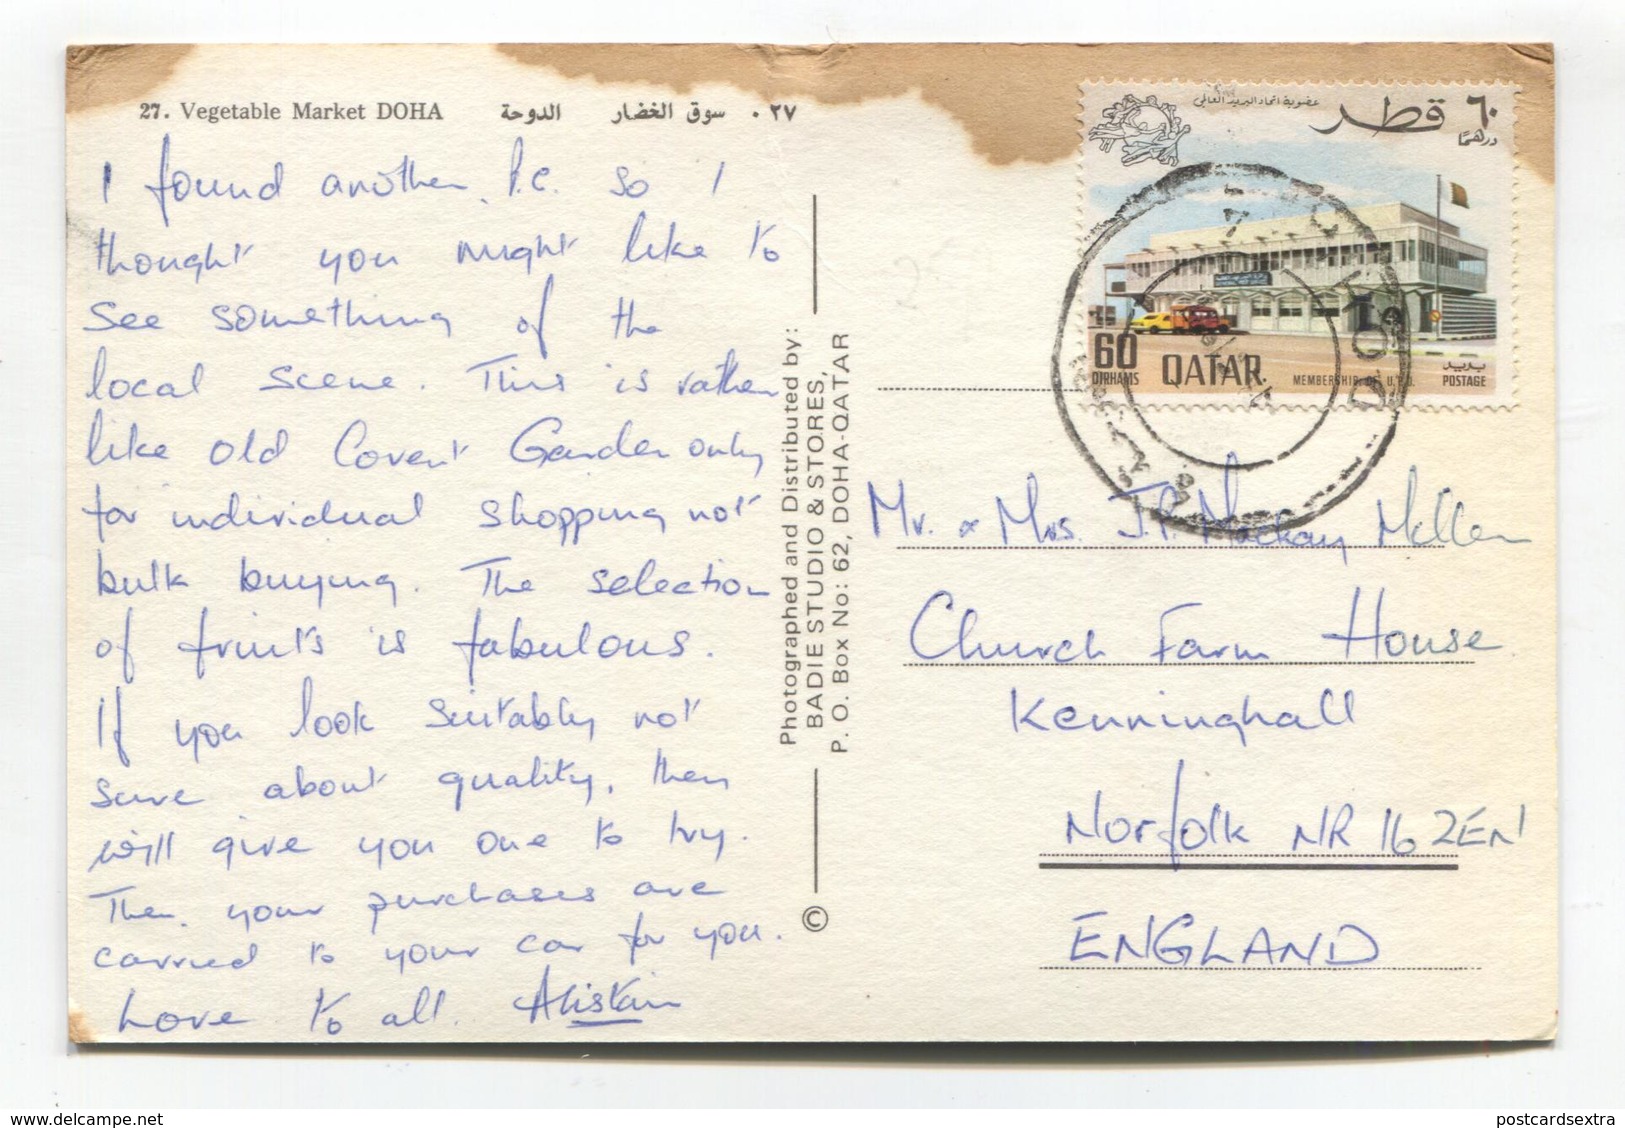 27. Vegetable Market DOHA    ٢٧ ٠ سوق الخضار    الدوحة
I found another P.C. so I
thought you might like to
see something of the
local scene. This is rather
like old Covent Garden only
for individual shopping not
bulk buying. The selection
of fruits is fabulous.
If you look suitably not
sure about quality, they
will give you one to try.
Then your purchases are
carried to your car for you.
Love to all. Alistair
Photographed and Distributed by:
BADIE STUDIO & STORES,
P. O. Box No: 62, DOHA-QATAR
©
عضوية اتحاد البريد العالمى
قطر
٦٠
درهمًا
60
DIRHAMS
QATAR
MEMBERSHIP OF U.P.U.
بريد
POSTAGE
DOHA
Mr. & Mrs. J.P. Mackay Miller
Church Farm House
Kenninghall
Norfolk NR 16 2EN
ENGLAND
delcampe.net
postcardsextra